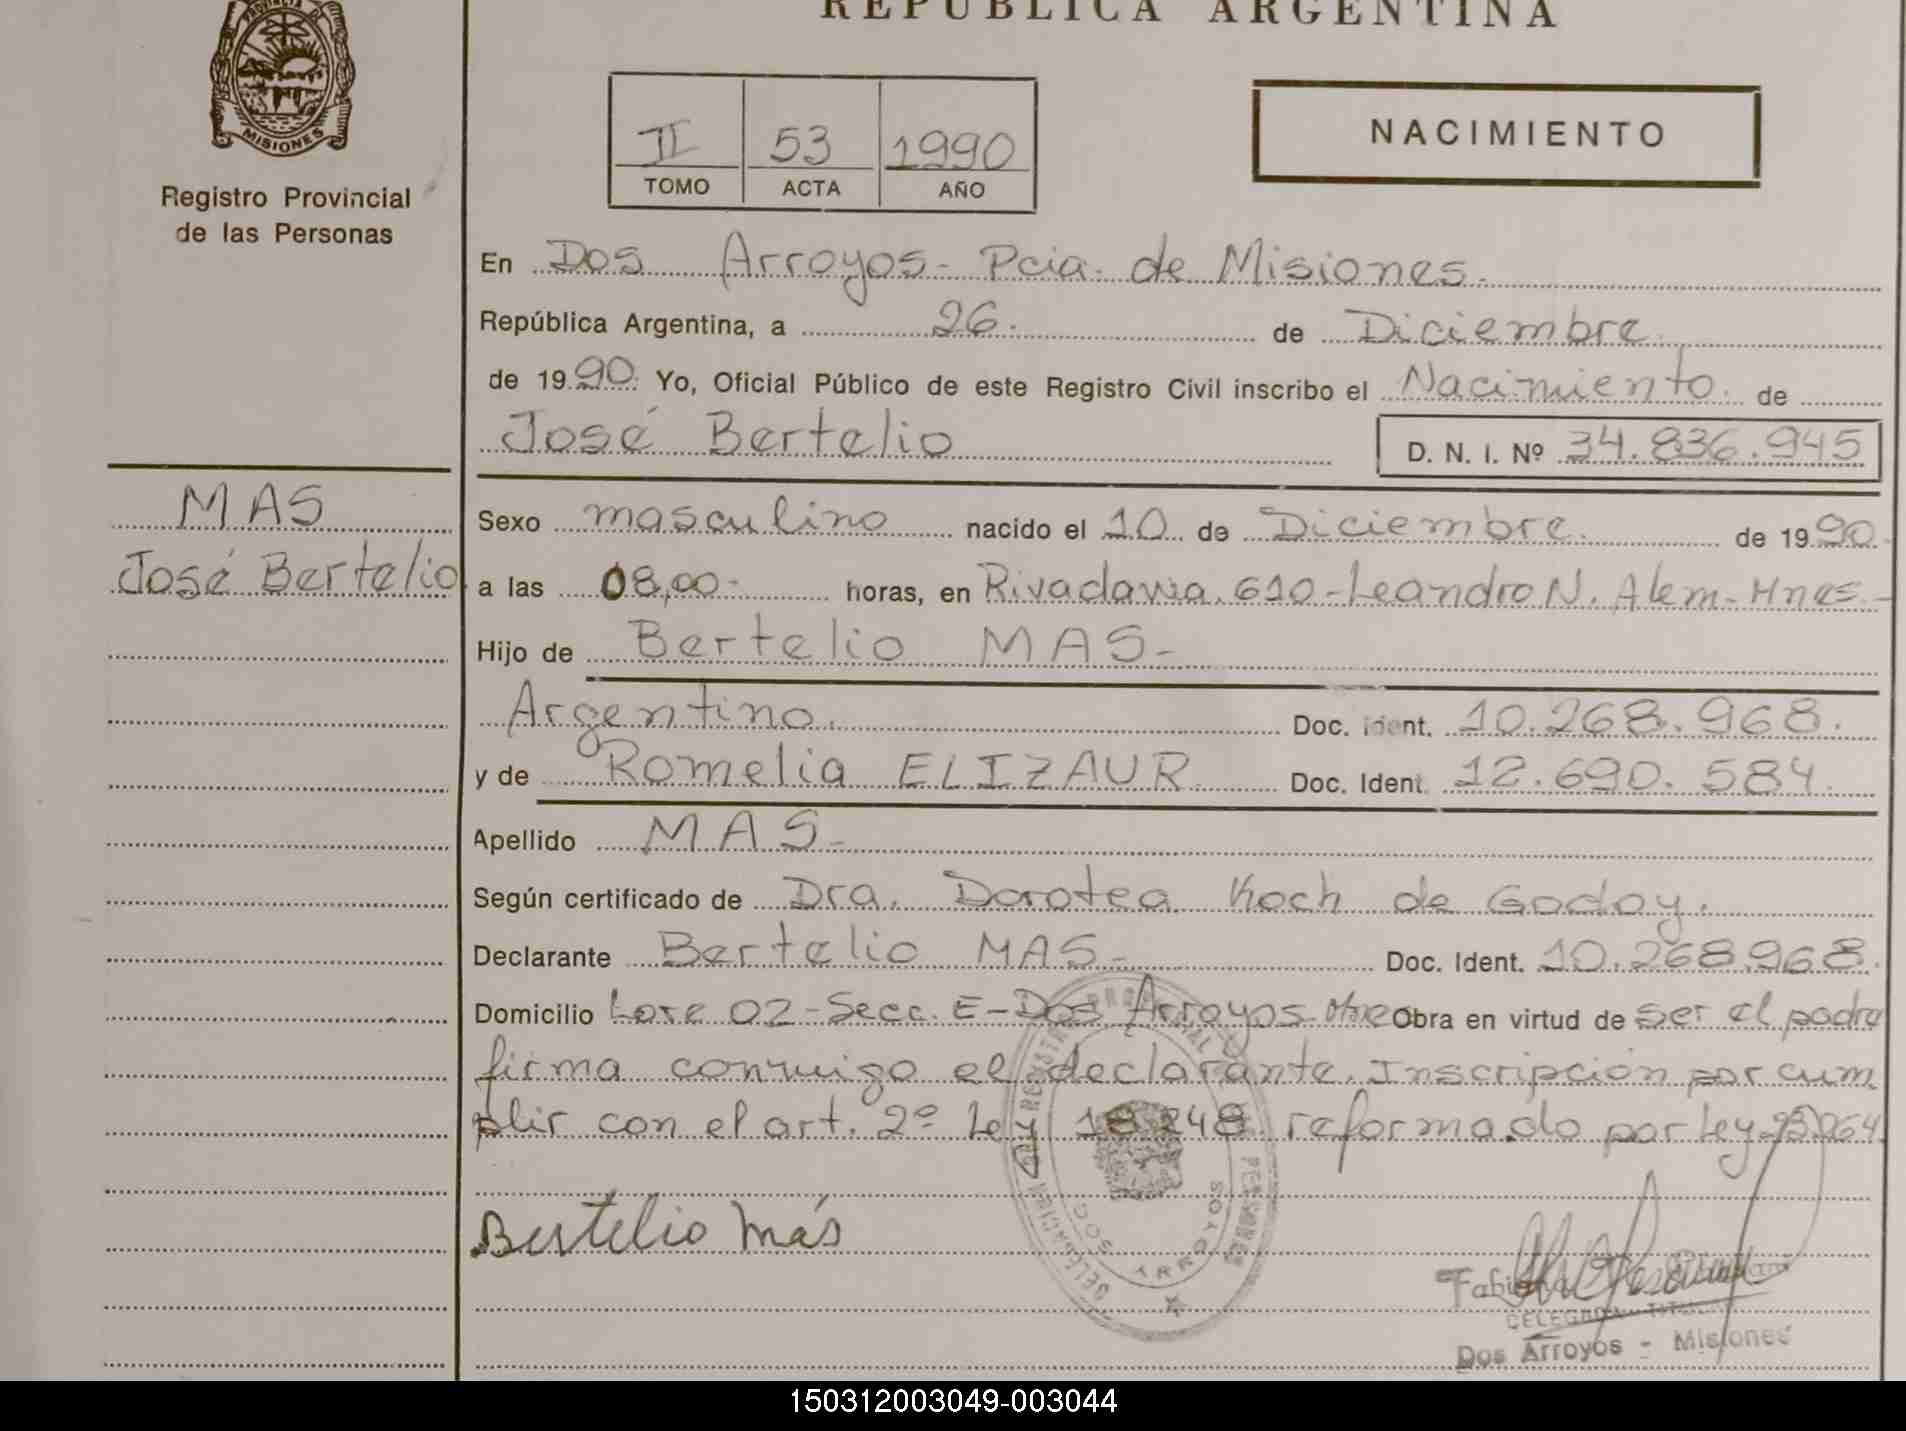 REPUBLICA ARGENTINA
PROVINCIA DE
MISIONES
Registro Provincial
de las Personas
II 53 1990
TOMO ACTA AÑO
NACIMIENTO
En Dos Arroyos- Pcia. de Misiones.
República Argentina, a 26. de Diciembre.
de 1990. Yo, Oficial Público de este Registro Civil inscribo el Nacimiento. de
José Bertelio D. N. I. Nº 34.836.945
MAS
José Bertelio
Sexo masculino nacido el 10 de Diciembre. de 1990.
a las 08,00- horas, en Rivadavia. 610-Leandro N. Alem-Mnes.-
Hijo de Bertelio MAS-
Argentino. Doc. Ident. 10.268.968.
y de Romelia ELIZAUR. Doc. Ident. 12.690.584.
Apellido MAS-
Según certificado de Dra. Dorotea Koch de Godoy.
Declarante Bertelio MAS- Doc. Ident. 10.268.968.
Domicilio Lote 02-Secc. E-Dos Arroyos-Mnes Obra en virtud de ser el padre
firma conmigo el declarante. Inscripción por cum
plir con el art. 2º Ley 18.248 reformado por Ley 23.264
Bertelio Más
REGISTRO PROVINCIAL
PERSONAS
DELEGACION
DOS ARROYOS
DELEGADA TITULAR
Dos Arroyos - Misiones
150312003049-003044